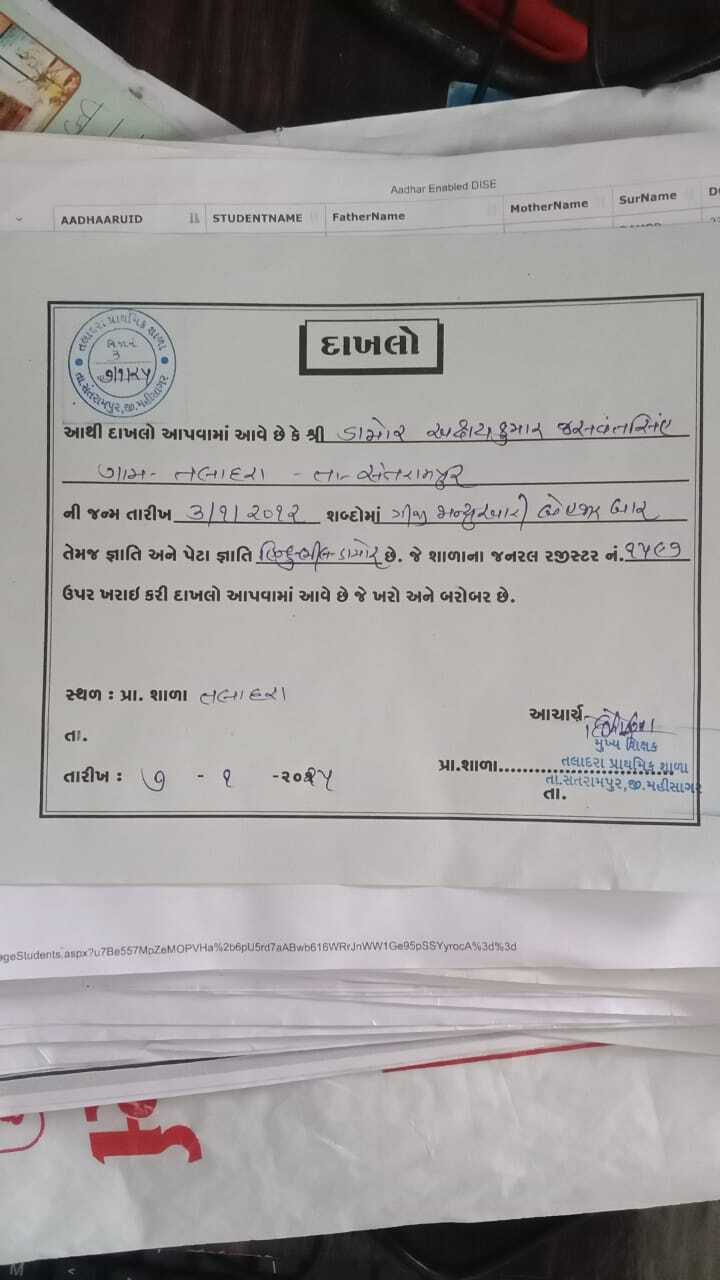 Aadhar Enabled DISE
AADHAARUID STUDENTNAME FatherName MotherName SurName
તલાદરા પ્રાથમિક શાળા
3
૭|૧|૨૫
તા.સંતરામપુર,જી.મહીસાગર
દાખલો
આથી દાખલો આપવામાં આવે છે કે શ્રી ડામોર અક્ષયકુમાર જસવંતસિંહ
ગામ- તલાદરા - તા- સંતરામપુર
ની જન્મ તારીખ 3|૧|૨૦૧૨ શબ્દોમાં ત્રીજી જાન્યુઆરી બે હજાર બાર
તેમજ જ્ઞાતિ અને પેટા જ્ઞાતિ હિન્દુ-ભીલ ડામોર છે. જે શાળાના જનરલ રજીસ્ટર નં.
ઉપર ખરાઇ કરી દાખલો આપવામાં આવે છે જે ખરો અને બરોબર છે.
સ્થળ : પ્રા. શાળા તલાદરા
આચાર્ય
તા.
મુખ્ય શિક્ષક
પ્રા.શાળા............ તલાદરા પ્રાથમિક શાળા
તારીખ : ૭ - ૧ -૨૦૨૫
તા.સંતરામપુર,જી.મહીસાગર
તા.
ageStudents.aspx?u7Be557MpZeMOPVHa%2b6pU5rd7aABwb616WRrJnWW1Ge95pSSYyrocA%3d%3d